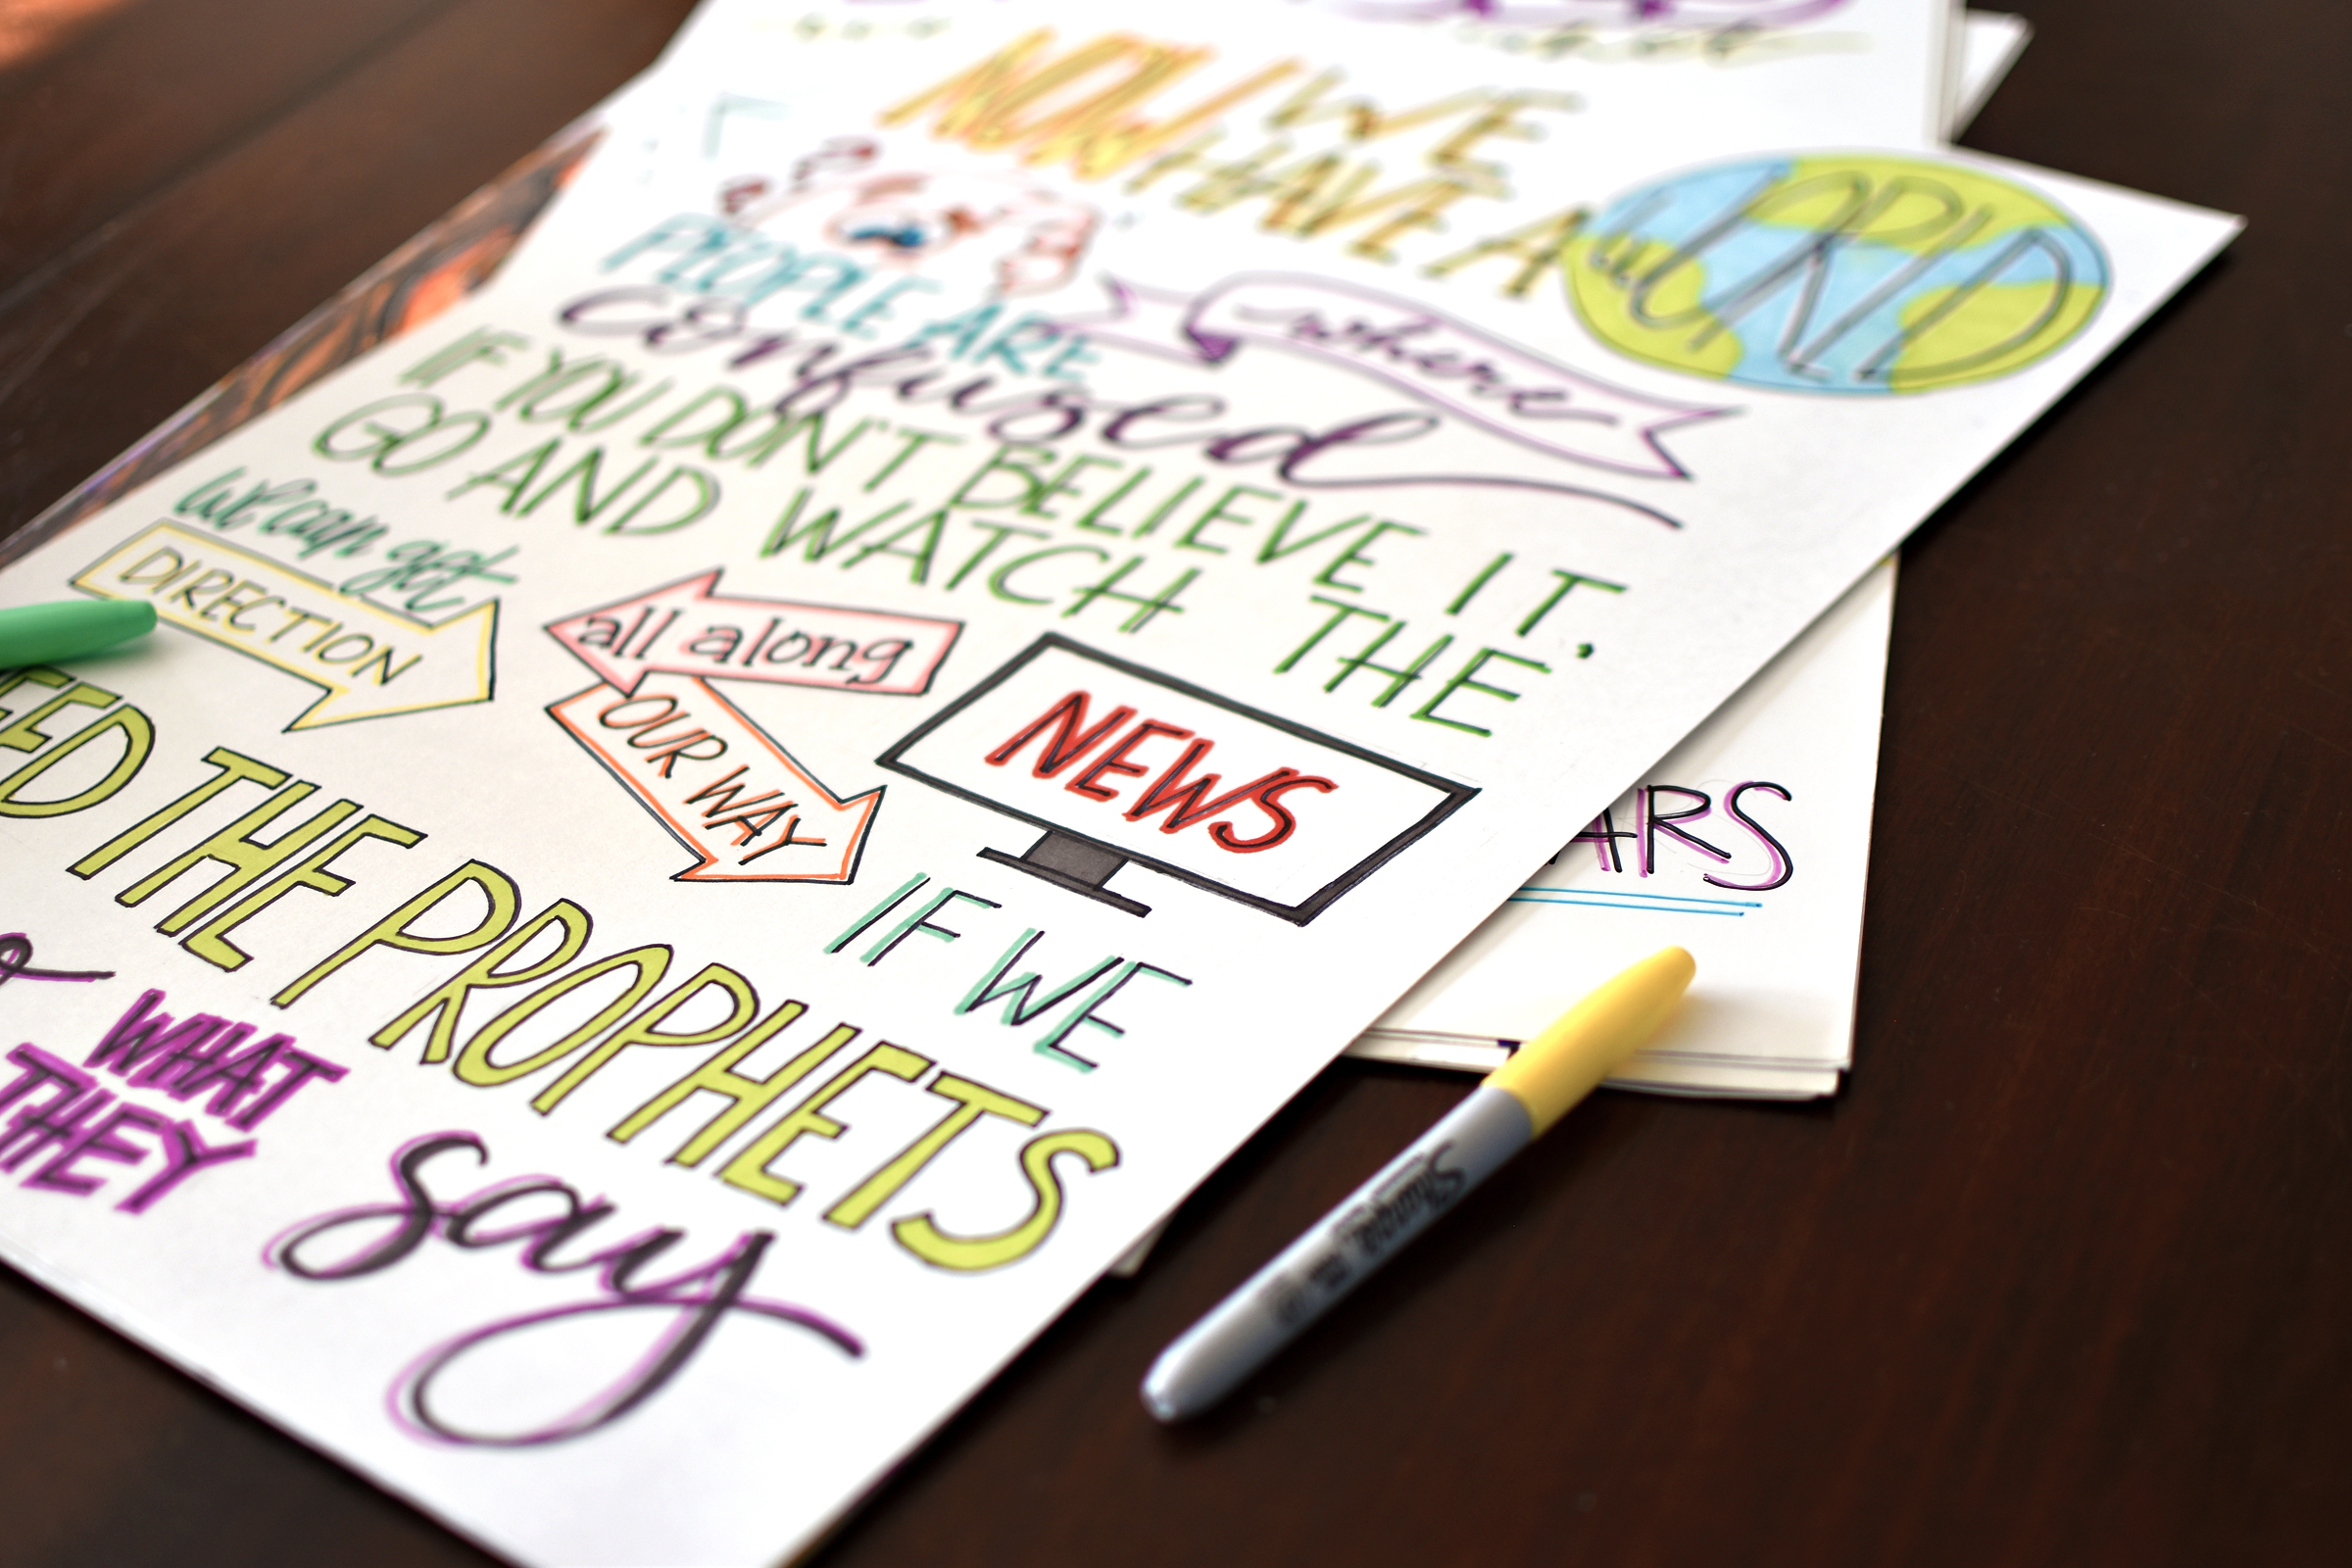 NOW WE
HAVE A WORLD
where
PEOPLE ARE
confused
IF YOU DON'T BELIEVE IT.
GO AND WATCH THE
NEWS
we can get
DIRECTION
all along
OUR WAY
IF WE
THE PROPHETS
WHAT
THEY
say
ARS
Sharpie